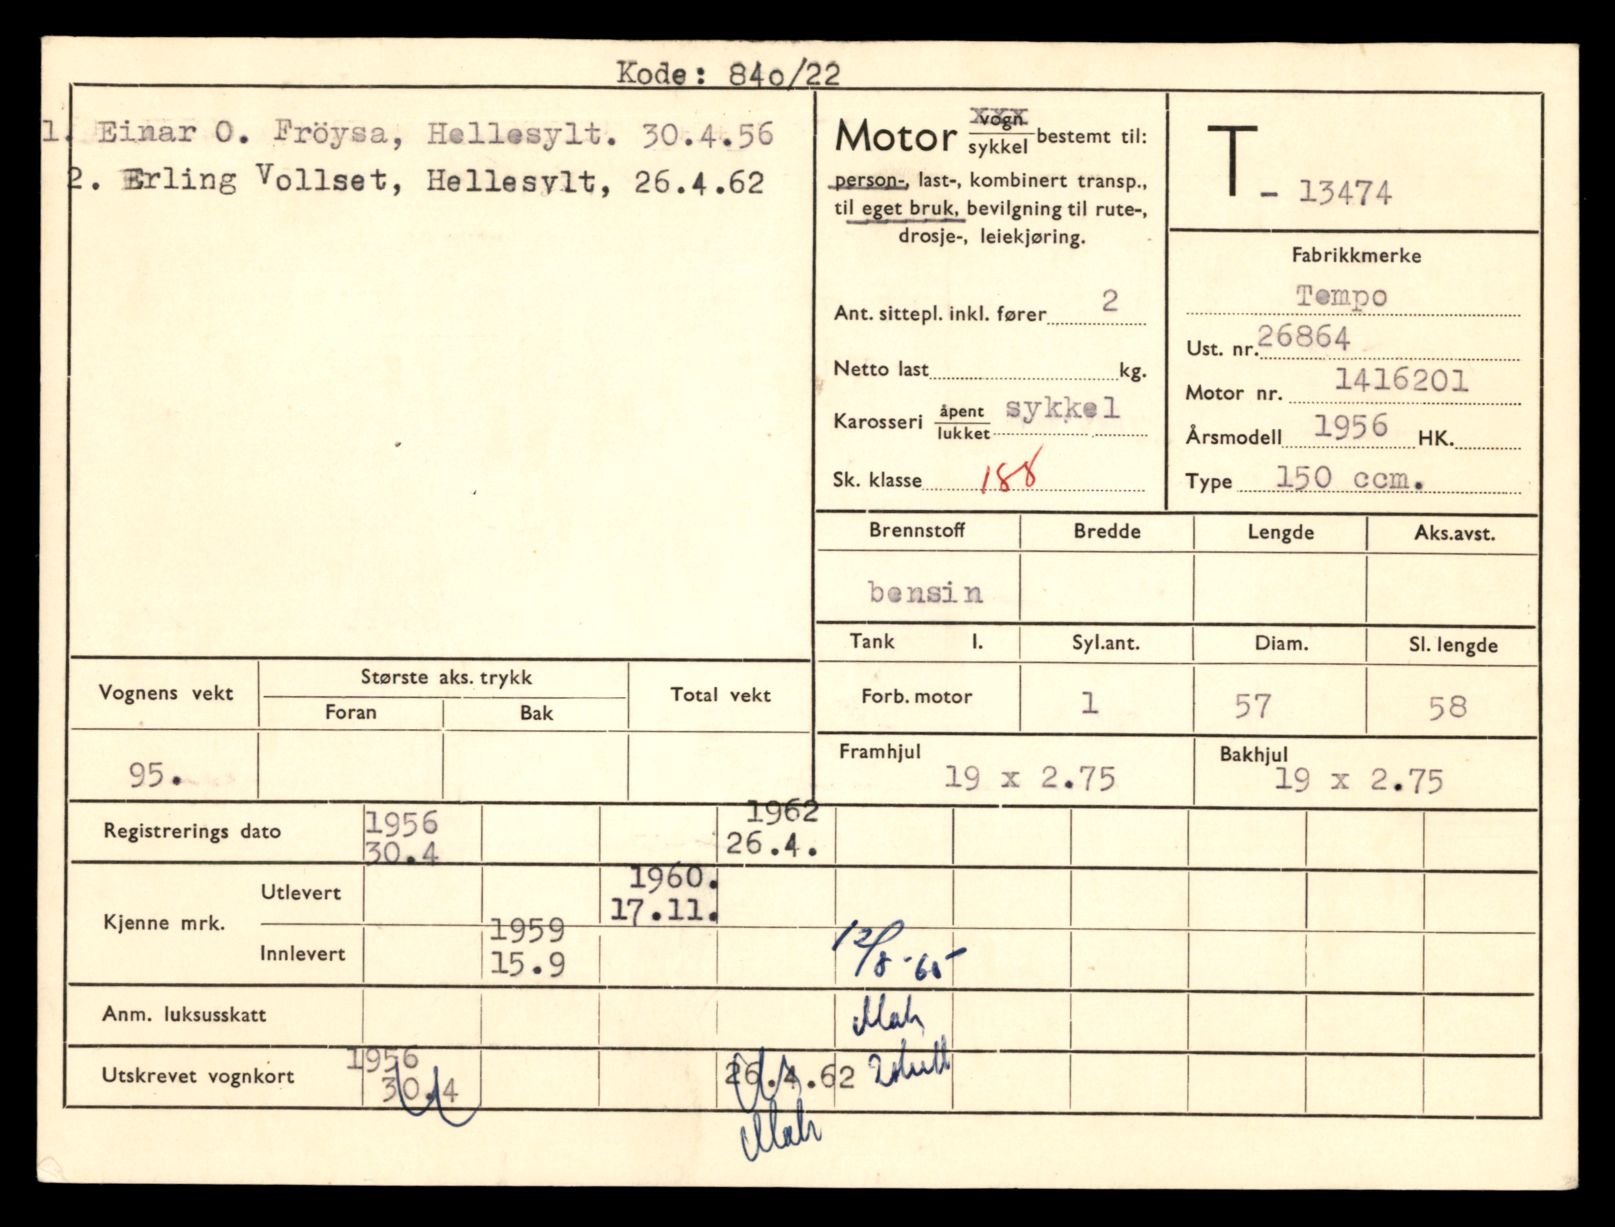 Kode: 840/22
1. Einar O. Fröysa, Hellesylt. 30.4.56
2. Erling Vollset, Hellesylt, 26.4.62
Motor vogn xxx
sykkel bestemt til:
person-, last-, kombinert transp.,
til eget bruk, bevilgning til rute-,
drosje-, leiekjøring.
Ant. sittepl. inkl. fører 2
Netto last kg.
Karosseri åpent
lukket sykkel
Sk. klasse 188
T - 13474
Fabrikkmerke
Tempo
Ust. nr. 26864
Motor nr. 1416201
Årsmodell 1956 HK.
Type 150 ccm.
Brennstoff Bredde Lengde Aks.avst.
bensin
Tank l. Syl.ant. Diam. Sl. lengde
Forb. motor 1 57 58
Framhjul 19 x 2.75
Bakhjul 19 x 2.75
Vognens vekt Største aks. trykk Total vekt
Foran Bak
95.
Registrerings dato 1956 1962
30.4 26.4.
Kjenne mrk.
Utlevert 1960.
17.11.
Innlevert 1959
15.9 12/8-65
Anm. luksusskatt
Utskrevet vognkort 1956
30.4 26.4.62